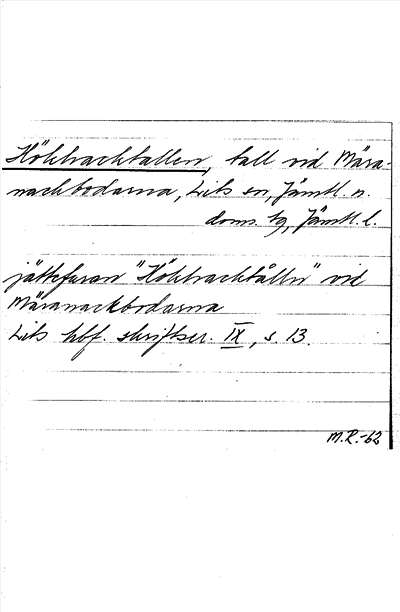 Hökbacktallen, tall vid Mära-
nackbodarna, Lits sn, Jämtl. n.
doms. tg, Jämtl. l.
jättefuran "Hökbacktålln" vid
Märanackbodarna
Lits hbf. skriftser. IX, s. 13.
M.R.-62